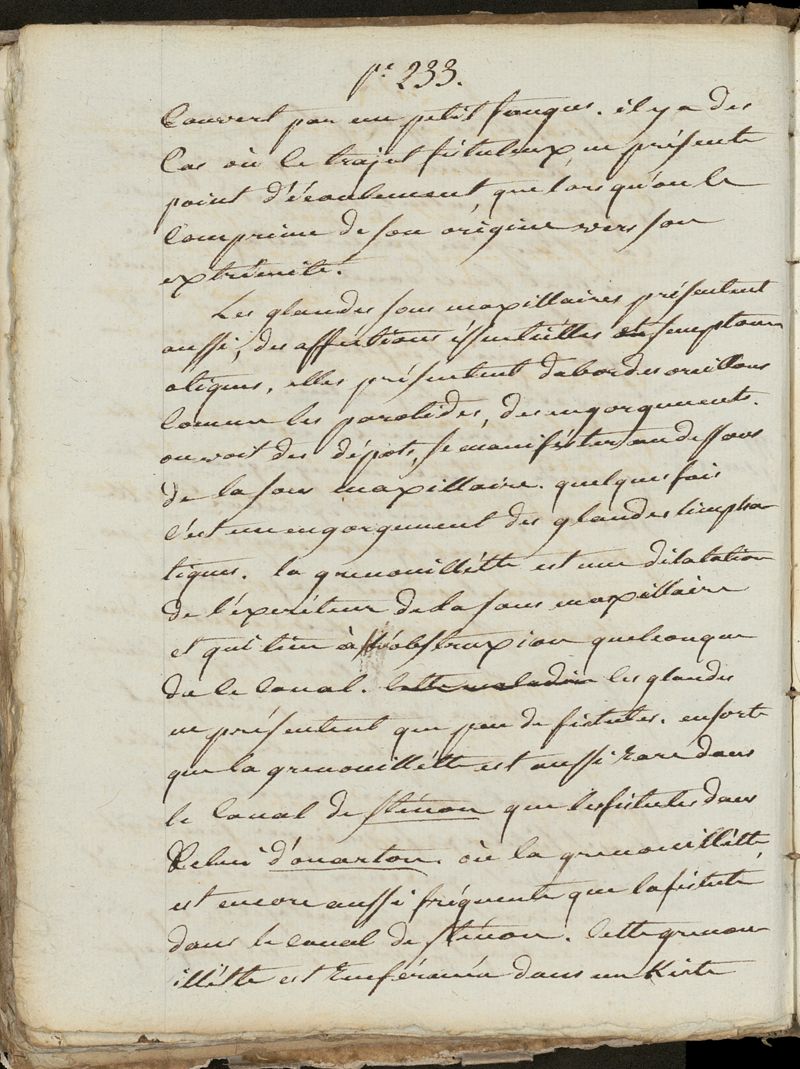 pe. 233.
Couvert par un petit fongus. il y a des
Cas où le trajet fistuleux ne présente
point d'écoulement, que lorsqu'on le
Comprime de son origine vers son
extrémité.
Les glandes sous maxillaires présentent
aussi, des afféctions éssentiélles et simptom
atiques, elles présentent dabord des oreillons
Comme les parotides, des engorgements.
on voit des dépots, se maniféster au dessous
de la sous maxillaire. quelques fois
c'est un engorgement des glandes limpha
tiques. la grenouillétte est une dilatation
de l'éxcréteur de la sous maxillaire
et qui tien à l'obstruxion quelconque
de le Canal. cette maladie les glandes
ne présentent que peu de fistules. ensorte
que la grenouillétte est aussi rare dans
le Canal de sténon que les fistules dans
Celui d'ouarton. où la grenouillétte
est encore aussi fréquente que la fistule
dans le Canal de sténon. Cette grenou
illétte est Enférmée dans un Kiste